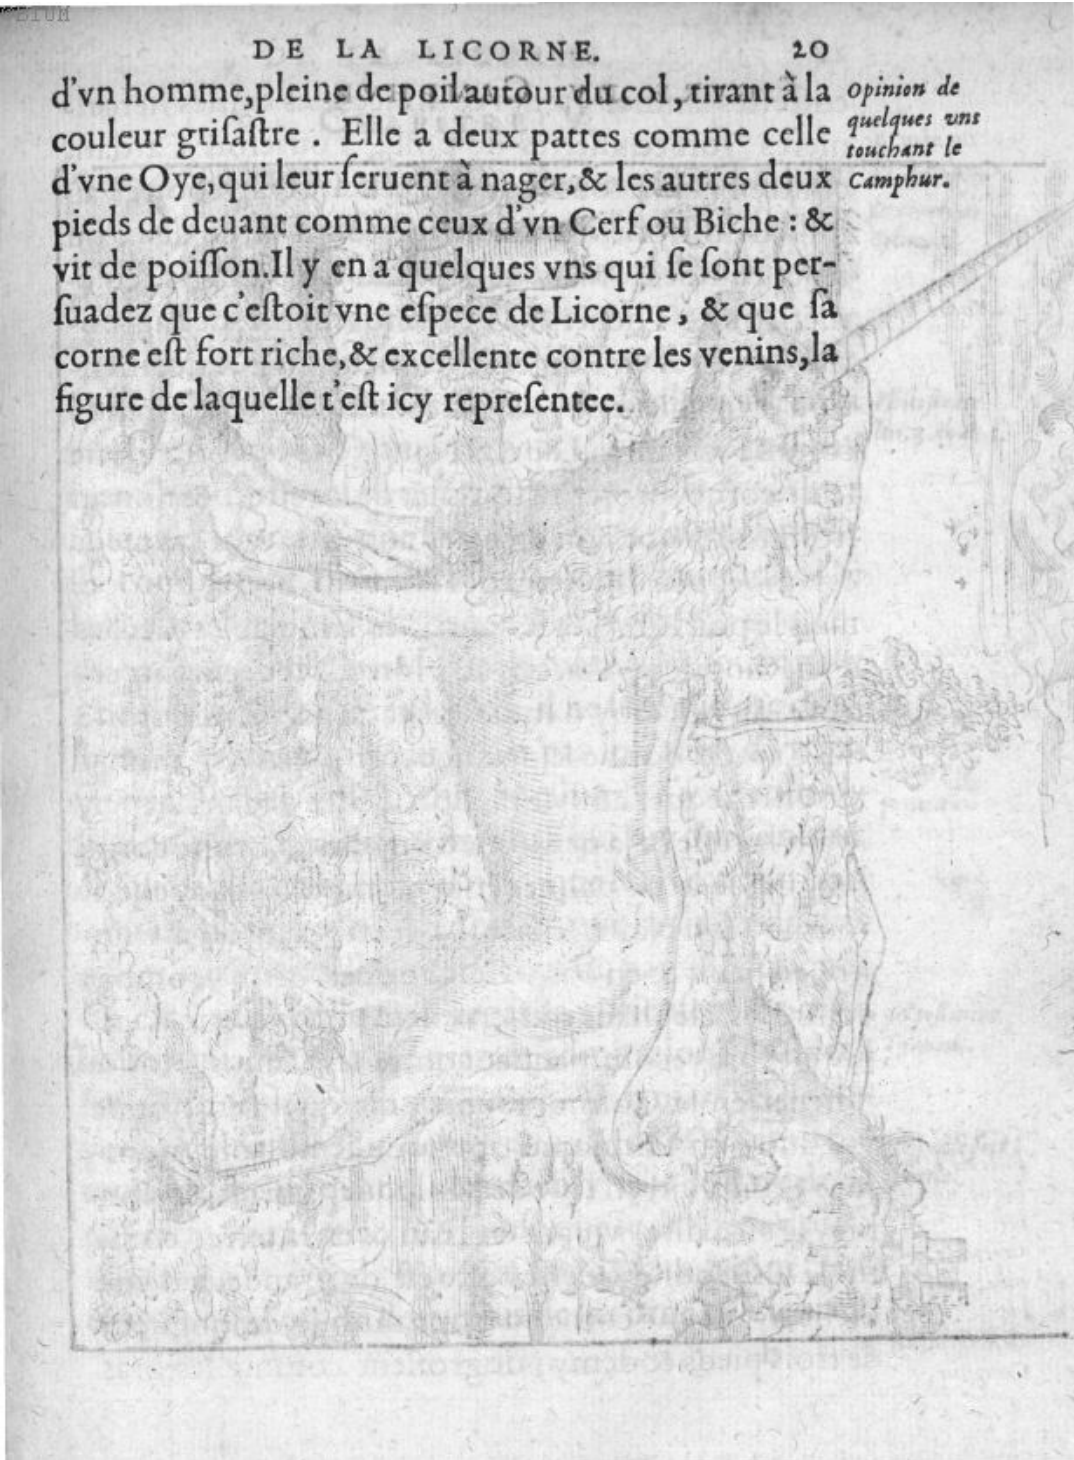 BIUM
DE LA LICORNE. 20
d'vn homme,pleine de poil autour du col, tirant à la
couleur grisastre . Elle a deux pattes comme celle
d'vne Oye,qui leur seruent à nager,& les autres deux
pieds de deuant comme ceux d'vn Cerf ou Biche : &
vit de poisson.Il y en a quelques vns qui se sont per-
suadez que c'estoit vne espece de Licorne, & que sa
corne est fort riche,& excellente contre les venins,la
figure de laquelle t'est icy representee.
Opinion de
quelques vns
touchant le
Camphur.